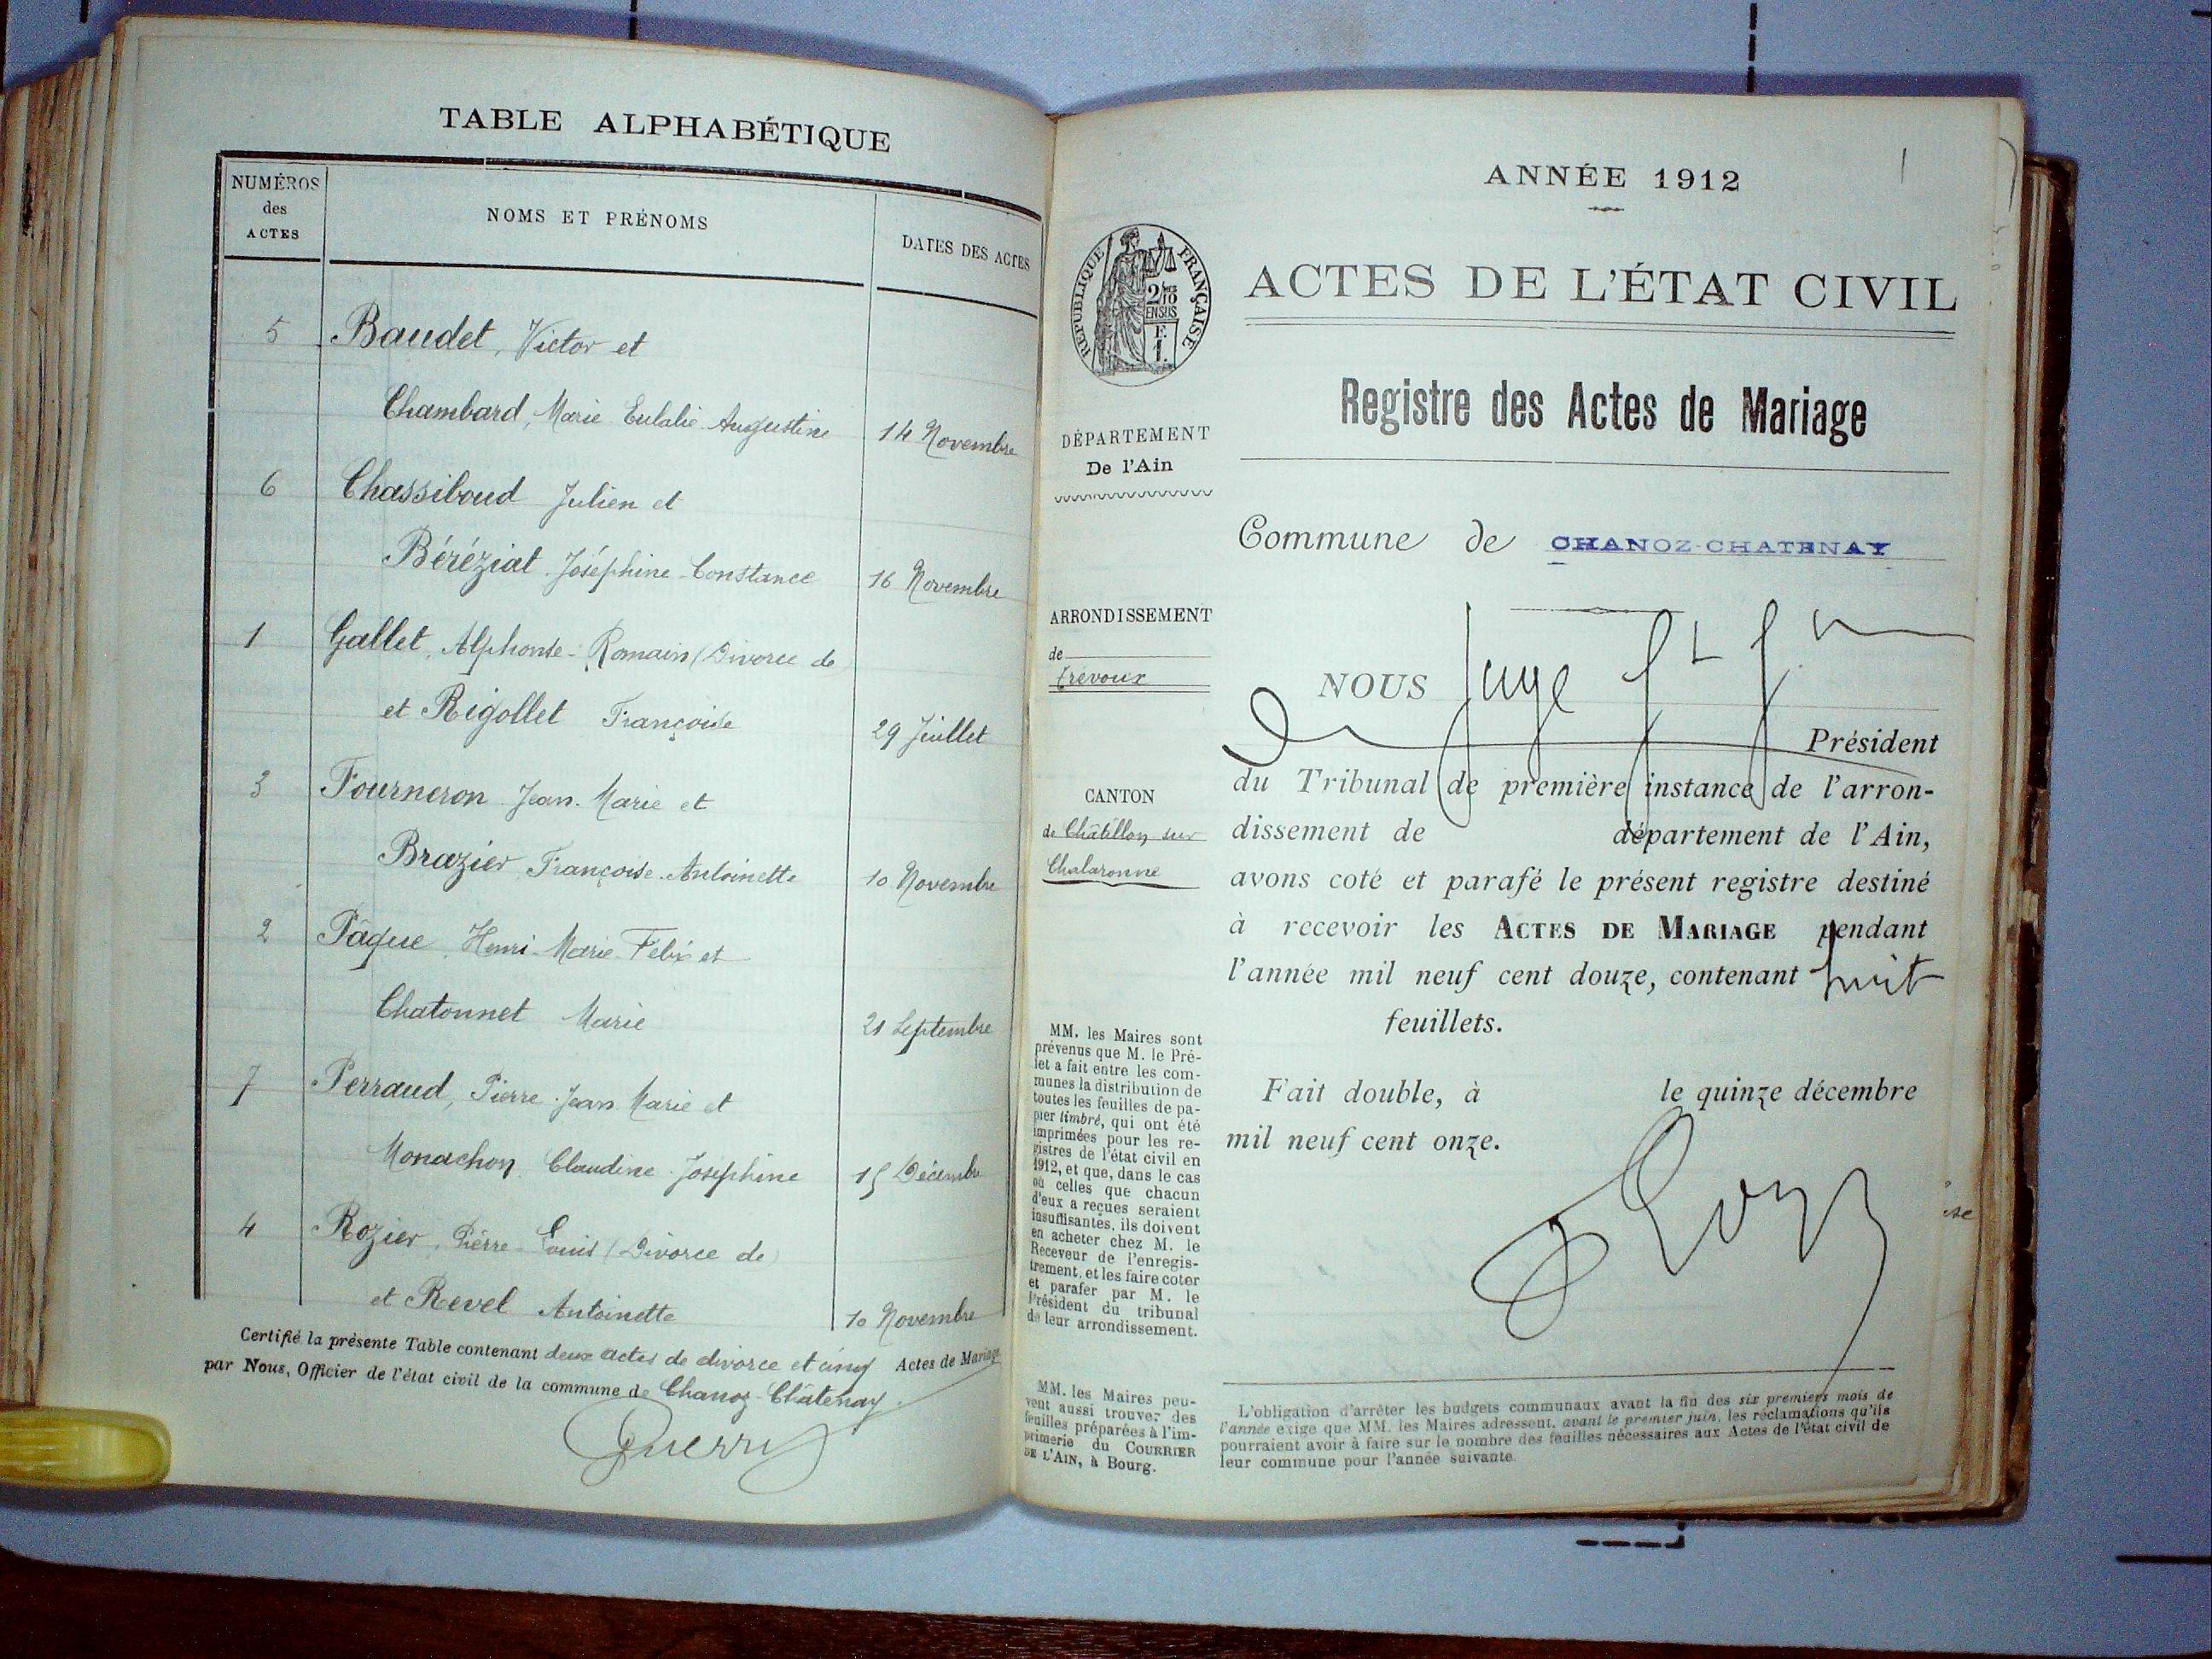 TABLE ALPHABÉTIQUE
NUMÉROS
des
ACTES
NOMS ET PRÉNOMS
DATES DES ACTES
5 Baudet, Victor et
Chambard, Marie Eulalie Augustine 14 Novembre
6 Chassiboud Julien et
Béréziat Joséphine-Constance 16 Novembre
1 Gallet, Alphonse-Romain (Divorce de
et Rigollet Françoise 29 Juillet
3 Fourneron Jean-Marie et
Brazier Françoise-Antoinette 10 Novembre
2 Pâque, Henri-Marie-Félix et
Chatonnet Marie 21 Septembre
7 Perraud, Pierre-Jean Marie et
Monachon Claudine-Joséphine 15 Décembre
4 Rozier, Pierre-Louis (Divorce de)
et Revel Antoinette 10 Novembre
Certifié la présente Table contenant deux actes de divorce et cinq Actes de Mariage
par Nous, Officier de l'état civil de la commune de Chanoz-Châtenay.
ANNÉE 1912
1
RÉPUBLIQUE FRANÇAISE
ACTES DE L'ÉTAT CIVIL
Registre des Actes de Mariage
DÉPARTEMENT
De l'Ain
Commune de CHANOZ-CHATENAY
ARRONDISSEMENT
de
Trévoux
CANTON
de Châtillon sur
Chalaronne
NOUS Juge
Président
du Tribunal de première instance de l'arron-
dissement de département de l'Ain,
avons coté et parafé le présent registre destiné
à recevoir les ACTES DE MARIAGE pendant
l'année mil neuf cent douze, contenant huit
feuillets.
Fait double, à le quinze décembre
mil neuf cent onze.
MM. les Maires sont
prévenus que M. le Pré-
fet a fait entre les com-
munes la distribution de
toutes les feuilles de pa-
pier timbré, qui ont été
imprimées pour les re-
gistres de l'état civil en
1912, et que, dans le cas
où celles que chacun
d'eux a reçues seraient
insuffisantes, ils doivent
en acheter chez M. le
Receveur de l'enregis-
trement, et les faire coter
et parafer par M. le
Président du tribunal
de leur arrondissement.
MM. les Maires peu-
vent aussi trouver des
feuilles préparées à l'im-
primerie du COURRIER
DE L'AIN, à Bourg.
L'obligation d'arrêter les budgets communaux avant la fin des six premiers mois de
l'année exige que MM. les Maires adressent, avant le premier juin, les réclamations qu'ils
pourraient avoir à faire sur le nombre des feuilles nécessaires aux Actes de l'état civil de
leur commune pour l'année suivante.